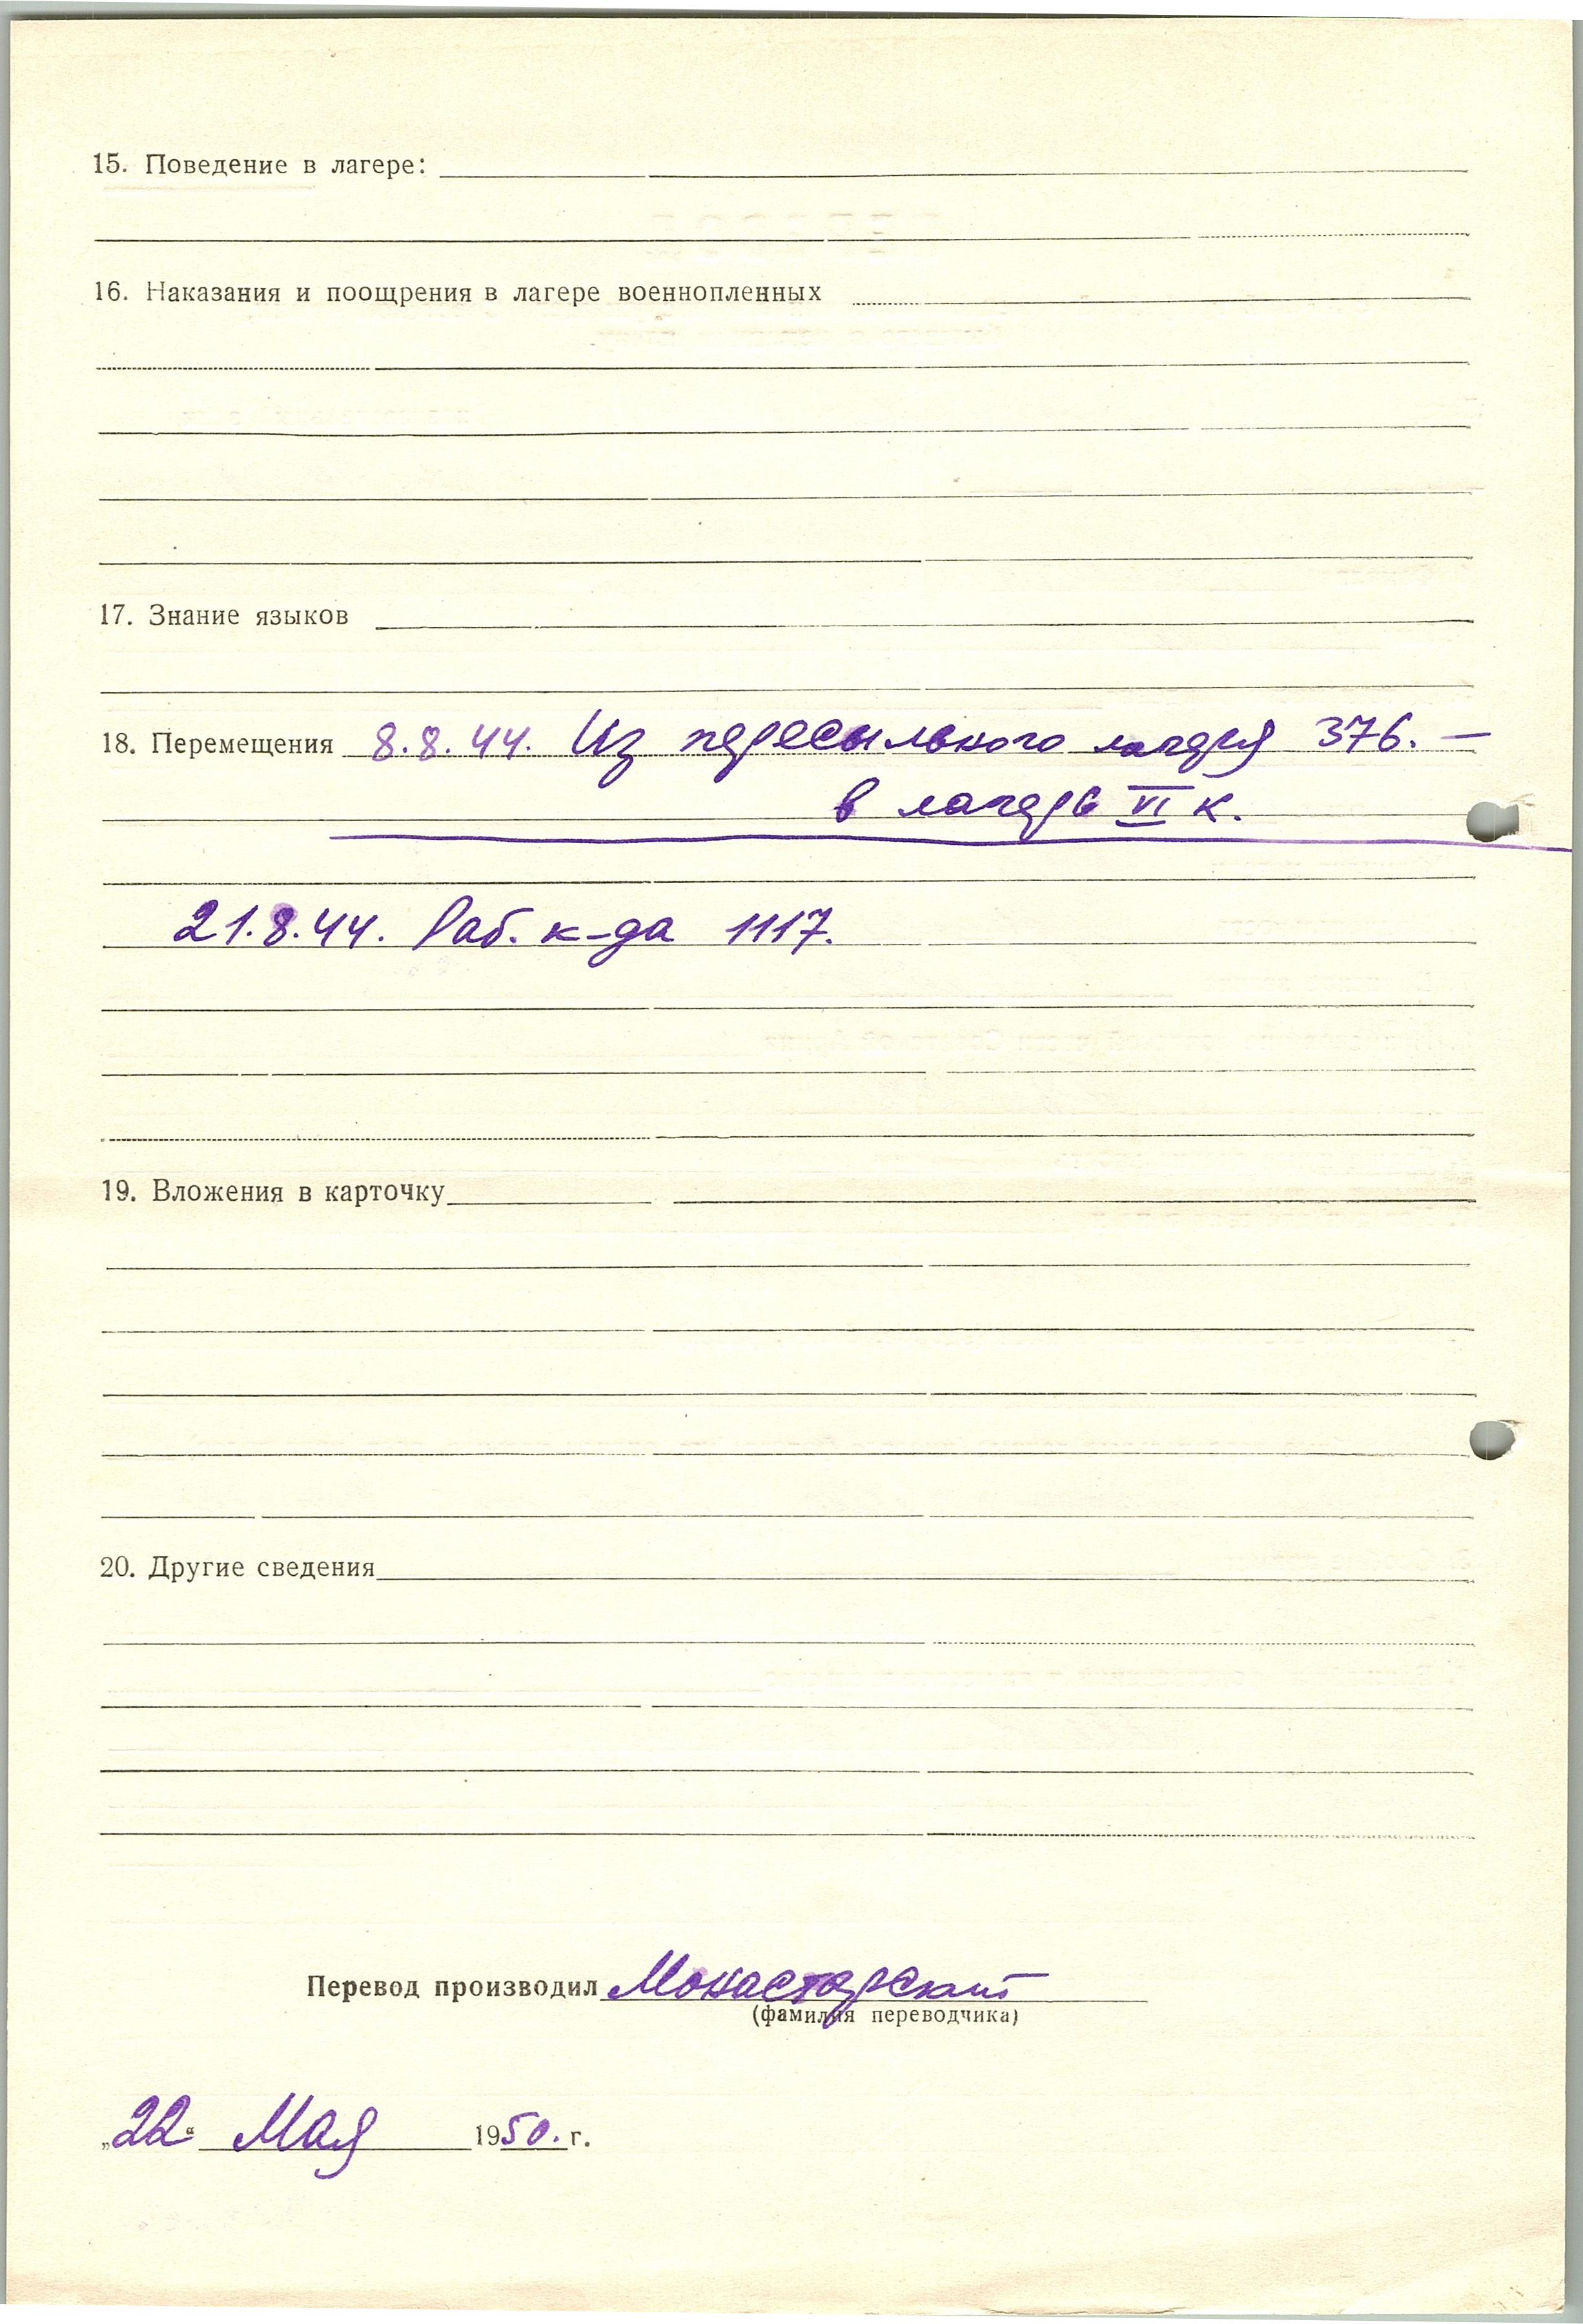 15. Поведение в лагере:
16. Наказания и поощрения в лагере военнопленных
17. Знание языков
18. Перемещения 8.8.44. Из пересыльного лагеря 376. —
в лагерь VI к.
21.8.44. Раб. к-да 1117.
19. Вложения в карточку
20. Другие сведения
Перевод производил Монастерский
(фамилия переводчика)
„22“ Мая 1950. г.